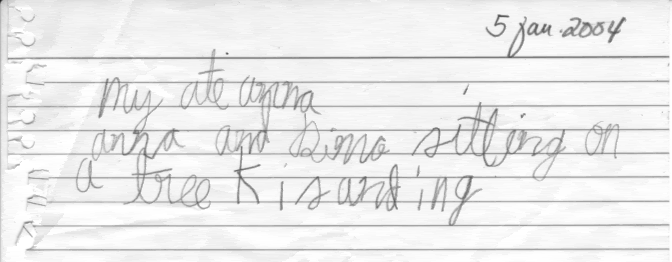 5 jan. 2004
my ate anna
anna and sitting on
a tree K i s and ing